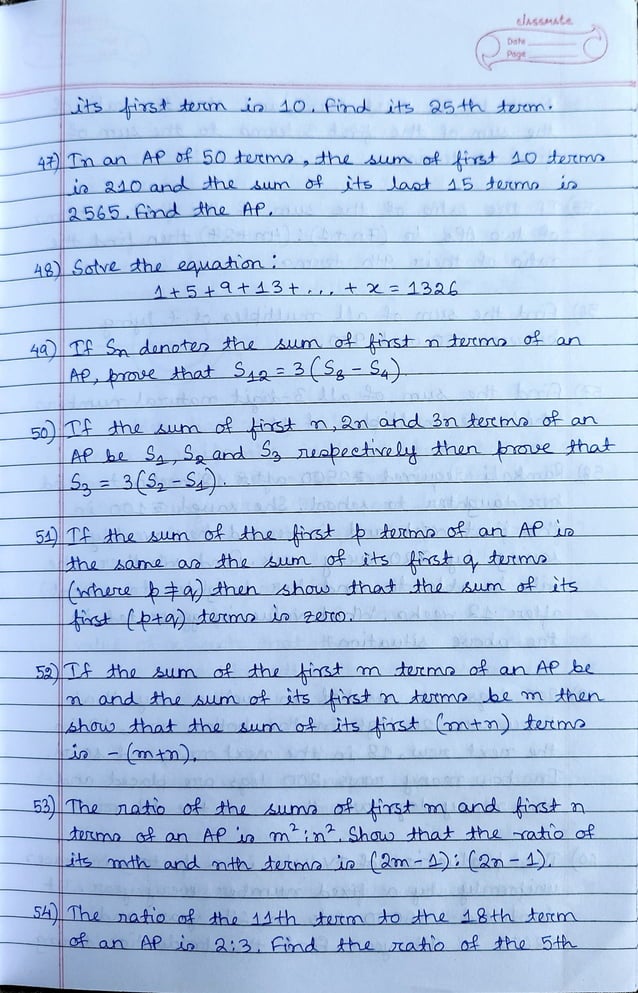 classmate
Date
Page
its first term is 10. Find its 25th term.
47) In an AP of 50 terms, the sum of first 10 terms
is 210 and the sum of its last 15 terms is
2565. Find the AP.
48) Solve the equation:
1+5+9+13+...+x=1326
49) If Sn denotes the sum of first n terms of an
AP, prove that S12 = 3(S8 - S4)
50) If the sum of first n, 2n and 3n terms of an
AP be S1, S2 and S3 respectively then prove that
S3 = 3(S2 - S1).
51) If the sum of the first p terms of an AP is
the same as the sum of its first q terms
(where p≠q) then show that the sum of its
first (p+q) terms is zero.
52) If the sum of the first m terms of an AP be
n and the sum of its first n terms be m then
show that the sum of its first (m+n) terms
is -(m+n).
53) The ratio of the sums of first m and first n
terms of an AP is m²:n². Show that the ratio of
its mth and nth terms is (2m-1):(2n-1).
54) The ratio of the 11th term to the 18th term
of an AP is 2:3. Find the ratio of the 5th